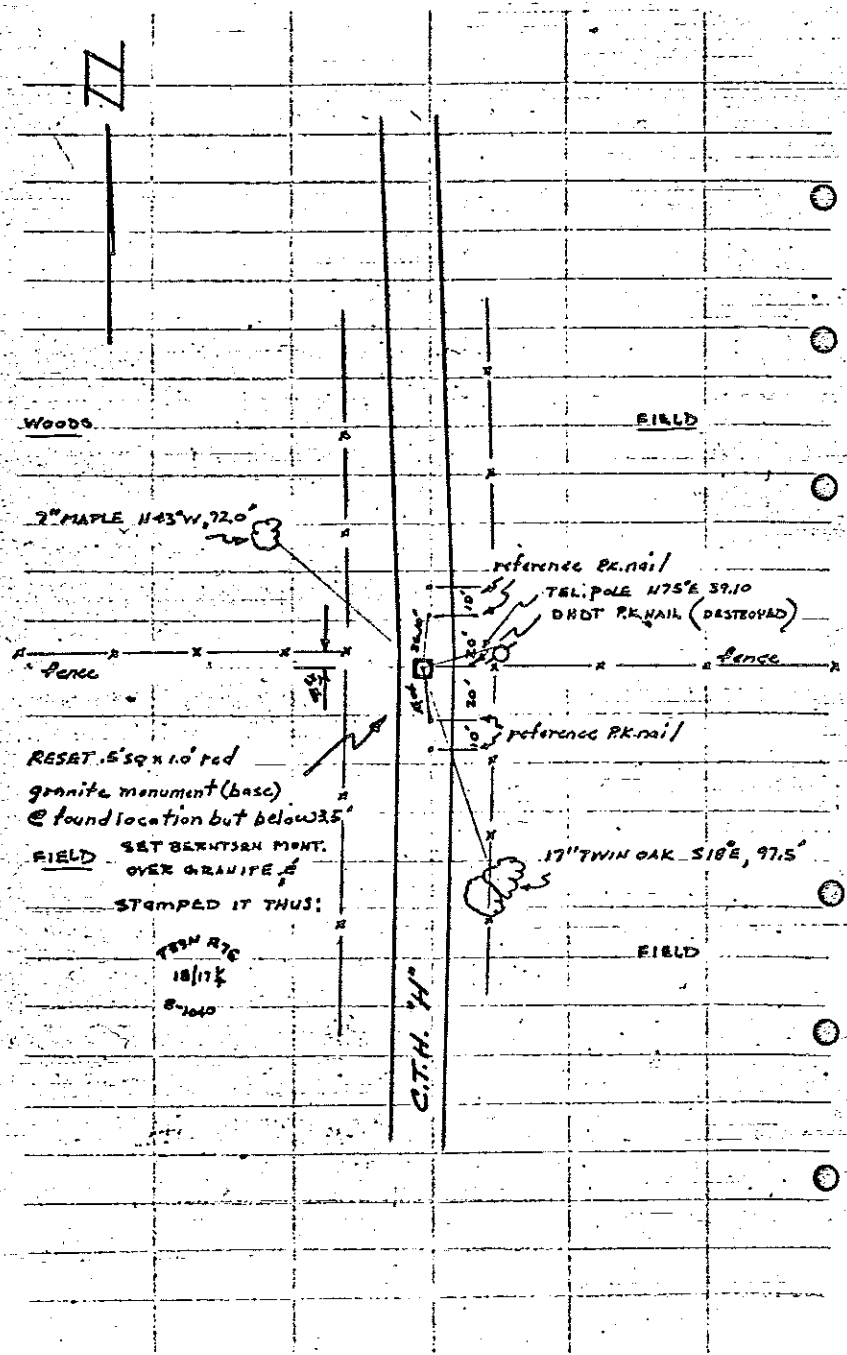 WOODS
FIELD
MAPLE N43°W, 72.0'
reference P.K. nail
10'
TEL. POLE N75°E 39.10
P.K. NAIL (DESTROYED)
20'
fence
fence
20'
10'
reference P.K. nail
RESET .5'sq x 1.0' red
granite monument (base)
@ found location but below 3.5'
FIELD
SET BERNTSEN MONT.
OVER GRANITE &
STAMPED IT THUS:
17" TWIN OAK S18°E, 97.5'
R7E
18/17 ¼
FIELD
C.T.H. "H"